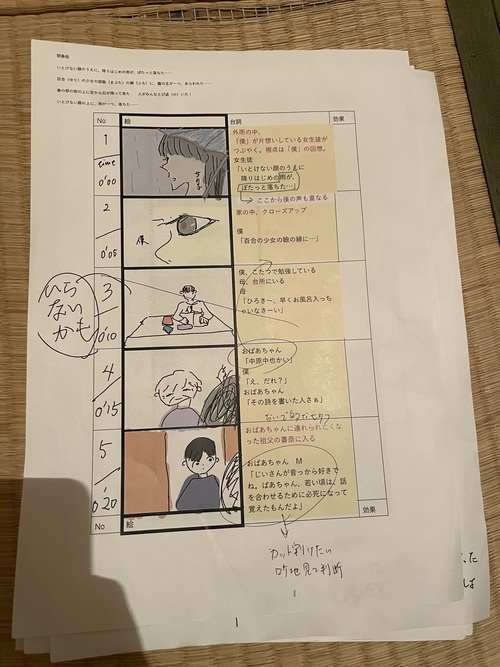 いとけない顔のうえに、降りはじめの雨が、ぽたっと落ちた……
百合(ゆり)の少女の眼瞼(まぶた)の縁(ふち)に、露の玉が一つ、あらわれた……
春の祭の街の上に空から石が降って来た　人がみんなとび退(の)いた!
いとけない顔の上に、雨が一つ、落ちた……
No 絵 台詞 効果
1
time
0'00
外雨の中、
「僕」が片想いしている女生徒が
つぶやく。視点は「僕」の回想。
女生徒
「いとけない顔のうえに
降りはじめの雨が、
ぽたっと落ちた…」
ここから僕の声も重なる
2
0'05
僕
家の中、クローズアップ
僕
「百合の少女の瞼の縁に…」
いら
ない
かも
3
0'10
僕、こたつで勉強している
母、台所にいる
母
「ひろきー、早くお風呂入っち
ゃいなさーい」
4
0'15
おばあちゃん
「中原中也かい」
僕
「え、だれ?」
おばあちゃん
「その詩を書いた人さぁ」
5
0'20
おばあちゃんに連れられ亡くな
った祖父の書斎に入る
おばあちゃん　M
「じいさんが昔っから好きで
ね。ばあちゃん、若い頃は、話
を合わせるために必死になって
覚えたもんだよ」
No 絵 効果
カット割りたい
ロケ地見て判断
1